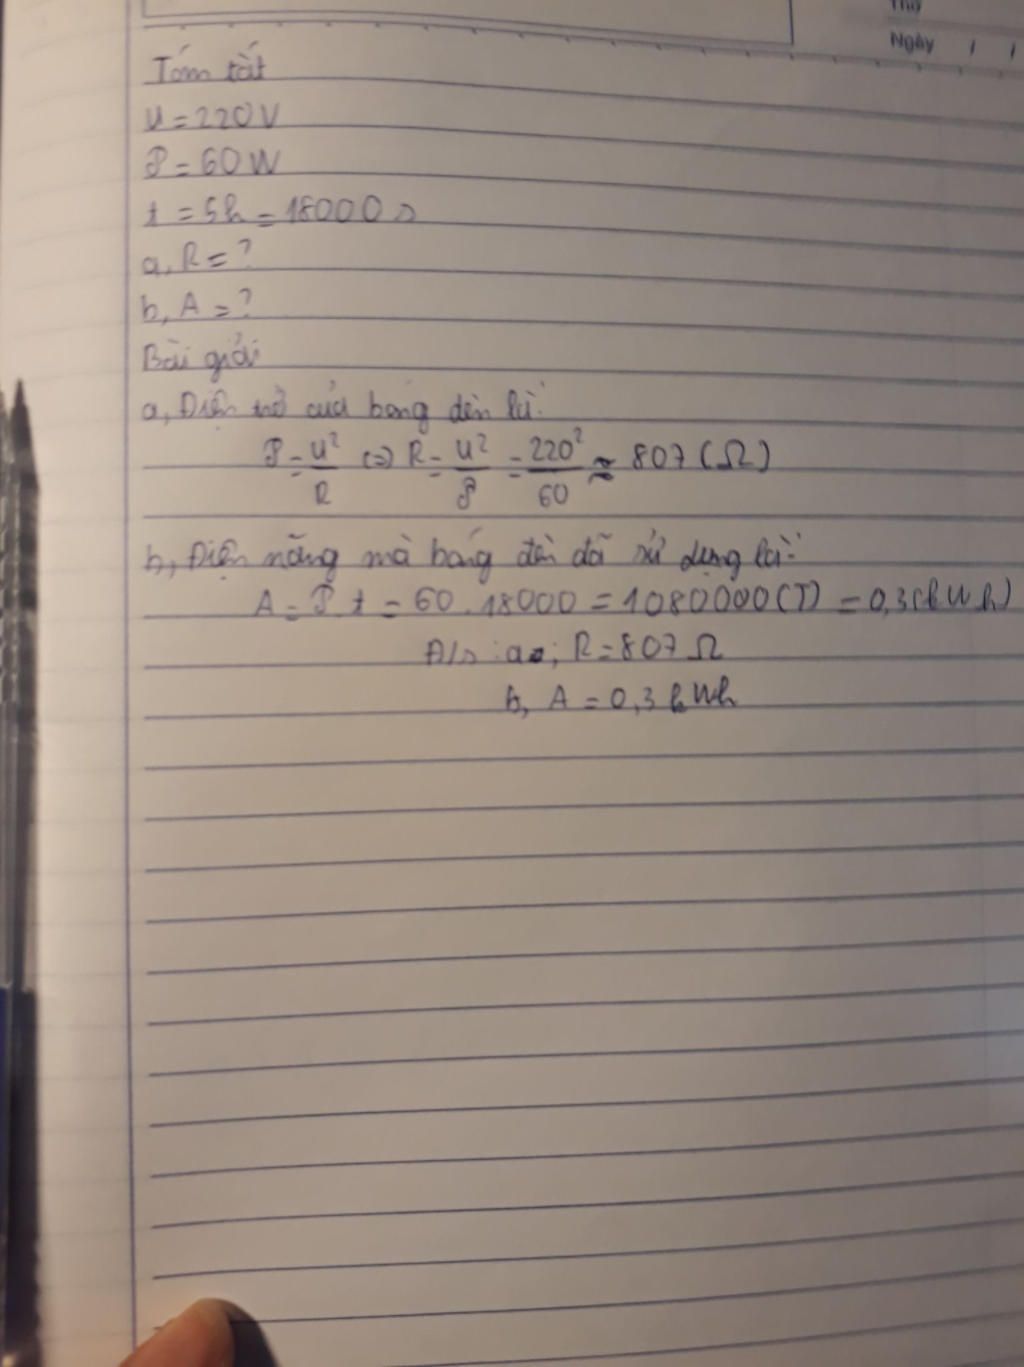 Thứ
Ngày / /
Tóm tắt
U = 220V
P = 60W
t = 5h = 18000s
a, R = ?
b, A = ?
Bài giải
a, Điện trở của bóng đèn là:
P = U²/R (=) R = U²/P = 220²/60 ≈ 807 (Ω)
b, Điện năng mà bóng đèn đã sử dụng là:
A = P.t = 60.18000 = 1080000(J) = 0,3(kWh)
Đ/s: a, R = 807 Ω
b, A = 0,3 kWh